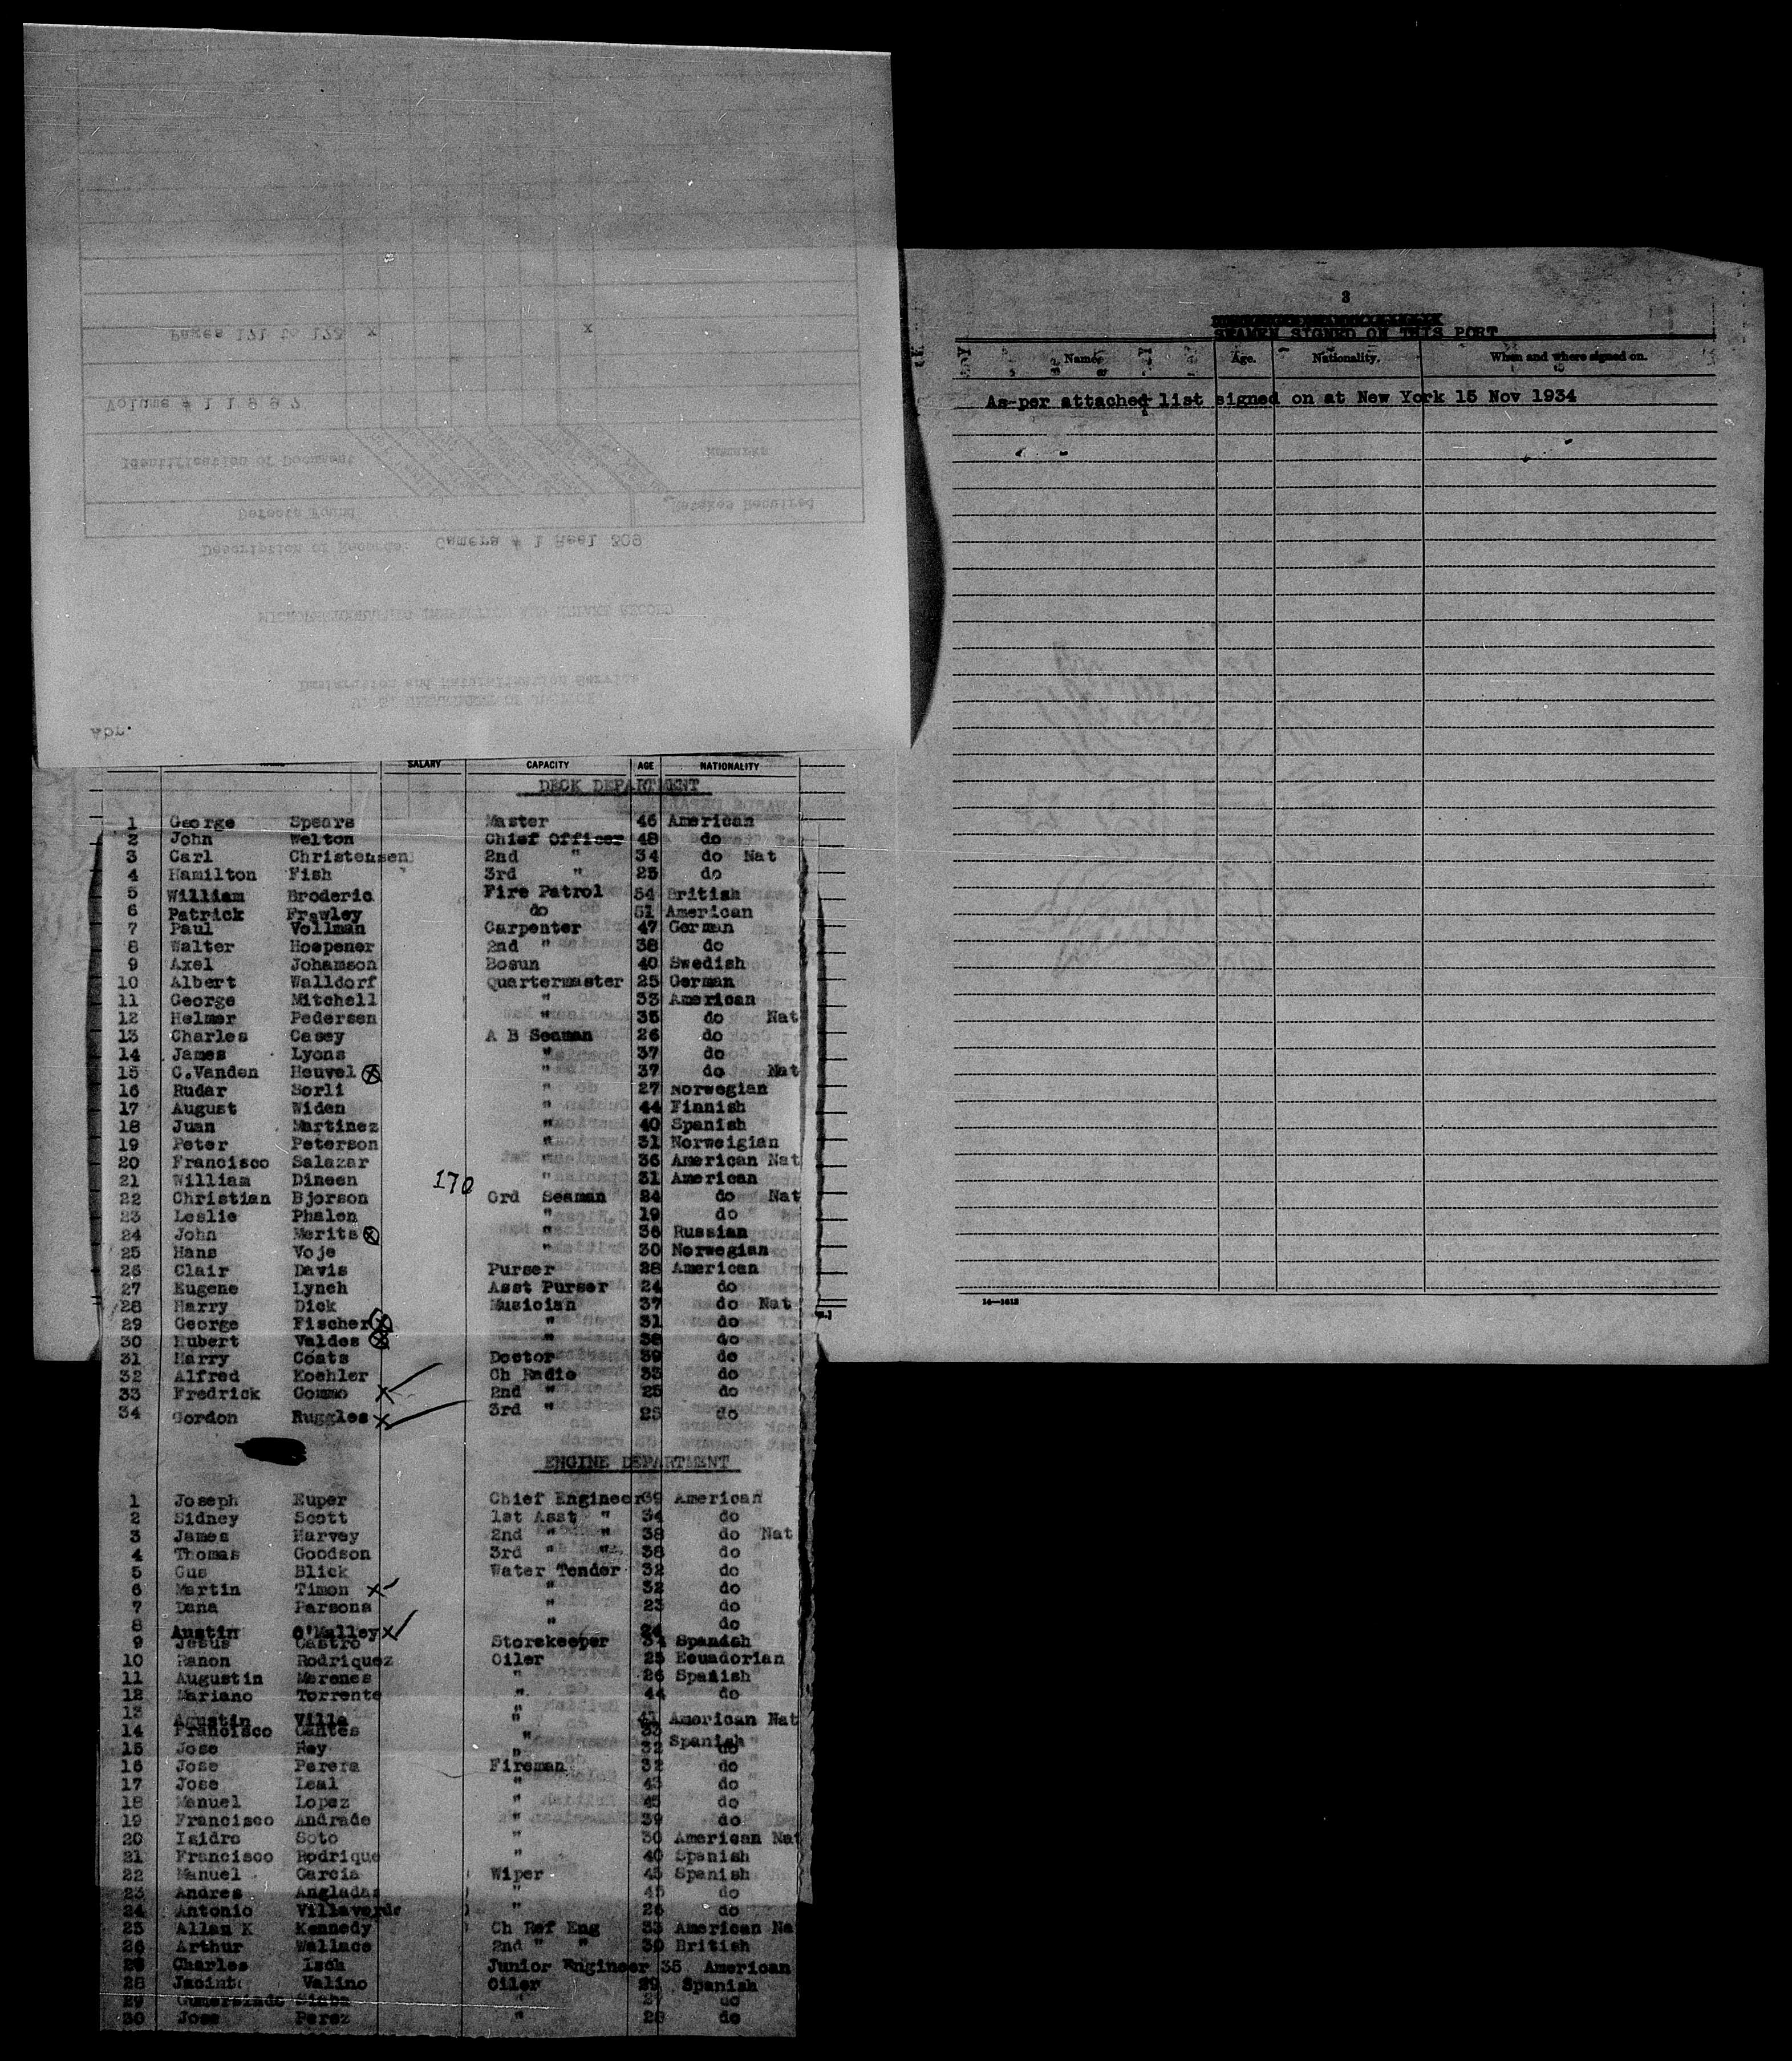 3
SEAMEN SIGNED ON THIS PORT
Name. Age. Nationality. When and where signed on.
As per attached list signed on at New York 15 Nov 1934
14—1618
Abr.
U. S. DEPARTMENT OF JUSTICE
Immigration and Naturalization Service
MICROPHOTOGRAPHIC INSPECTION AND RETAKE RECORD
Description of Records: Camera # 1 Reel 309
Defects Found Retakes Required
Identification of Document Remarks
Volume # 11997
Pages 171 to 173 x x
SALARY CAPACITY AGE NATIONALITY
DECK DEPARTMENT
1 George Spears Master 46 American
2 John Welton Chief Officer 48 do
3 Carl Christensen 2nd " 34 do Nat
4 Hamilton Fish 3rd " 25 do
5 William Broderic Fire Patrol 54 British
6 Patrick Frawley do 51 American
7 Paul Vollman Carpenter 47 German
8 Walter Hoepener 2nd " 38 do
9 Axel Johamson Bosun 40 Swedish
10 Albert Walldorf Quartermaster 25 German
11 George Mitchell " 33 American
12 Helmer Pedersen " 35 do Nat
13 Charles Casey A B Seaman 26 do
14 James Lyons " 37 do
15 C.Vanden Heuvel " 37 do Nat
16 Rudar Sorli " 27 Norwegian
17 August Widen " 44 Finnish
18 Juan Martinez " 40 Spanish
19 Peter Peterson " 31 Norweigian
20 Francisco Salazar " 36 American Nat
21 William Dineen 170 " 31 American
22 Christian Bjorson Ord Seaman 24 do Nat
23 Leslie Phalon " 19 do
24 John Merits " 36 Russian
25 Hans Voje " 30 Norwegian
26 Clair Davis Purser 28 American
27 Eugene Lynch Asst Purser 24 do
28 Harry Dick Musician 37 do Nat
29 George Fischer " 31 do
30 Hubert Valdes " 38 do
31 Harry Coats Doctor 39 do
32 Alfred Koehler Ch Radio 33 do
33 Fredrick Gommo x 2nd " 25 do
34 Gordon Ruggles x 3rd " 25 do
ENGINE DEPARTMENT
1 Joseph Euper Chief Engineer 39 American
2 Sidney Scott 1st Asst " 34 do
3 James Harvey 2nd " " 38 do Nat
4 Thomas Goodson 3rd " " 38 do
5 Gus Blick Water Tender 32 do
6 Martin Timon x " 32 do
7 Dana Parsons " 23 do
8 Austin O'Malley x " 24 do
9 Jesus Castro Storekeeper Spanish
10 Ramon Rodriquez Oiler 25 Ecuadorian
11 Augustin Merenes " 26 Spanish
12 Mariano Torrente " 44 do
13 Agustin Villa " 41 American Nat
14 Francisco Cantes " 33 Spanish
15 Jose Rey " 32 do
16 Jose Perera Fireman 32 do
17 Jose Leal " 43 do
18 Manuel Lopez " 45 do
19 Francisco Andrade " 39 do
20 Isidro Soto " 30 American Nat
21 Francisco Rodrique " 40 Spanish
22 Manuel Garcia Wiper 45 Spanish
23 Andres Angladas " 45 do
24 Antonio Villaverde " 26 do
25 Allan K Kennedy Ch Ref Eng 33 American Na
26 Arthur Wallace 2nd " " 30 British
Charles Isch Junior Engineer 35 American
28 Jacint Valino Oiler 29 Spanish
29 " do
30 Jose Perez " 28 do